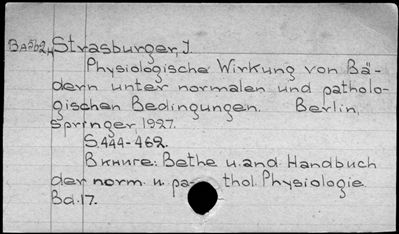 Strasburger, J.
Physiologische Wirkung von Bä-
dern unter normalen und patholo-
gischen Bedingungen. Berlin,
Springer, 1927.
S. 444-462.
В книге: Bethe u. and. Handbuch
der norm. u. pa- thol. Physiologie.
Bd. 17.